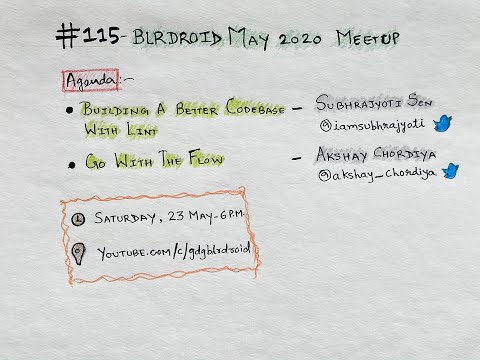 #115- BLRDROID MAY 2020 MEETUP
Agenda:-
• BUILDING A BETTER CODEBASE WITH LINT — SUBHRAJYOTI SEN
@iamsubhrajyoti
• GO WITH THE FLOW — AKSHAY CHORDIYA
@akshay_chordiya
SATURDAY, 23 MAY-6 P.M.
YOUTUBE.COM/C/gdgblrdroid